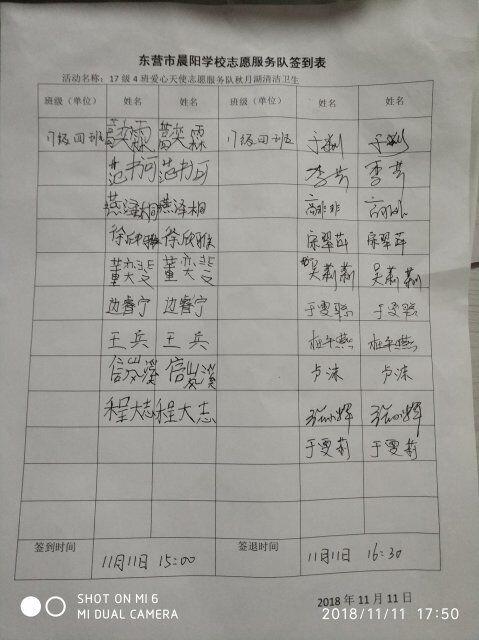 东营市晨阳学校志愿服务队签到表
活动名称：17级4班爱心天使志愿服务队秋月湖清洁卫生
班级（单位） 姓名 姓名 班级（单位） 姓名 姓名
17级四班 葛奕霖 葛奕霖 17级四班
范书河 范书河 李芳 李芳
燕泽桐 燕泽桐 高非非
徐欣雅 徐欣雅 宋翠萍 宋翠萍
董奕斐 董奕斐 吴莉莉 吴莉莉
边睿宁 边睿宁 于雯聪 于雯聪
王兵 王兵
卢沫 卢沫
程大志 程大志 张小辉 张小辉
于雯莉 于雯莉
签到时间 11月11日 15:00 签退时间 11月11日 16:30
2018年11月11日
SHOT ON MI 6
MI DUAL CAMERA
2018/11/11 17:50